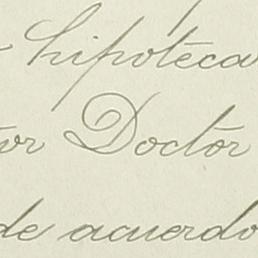 hipoteca
or Doctor
de acuerdo